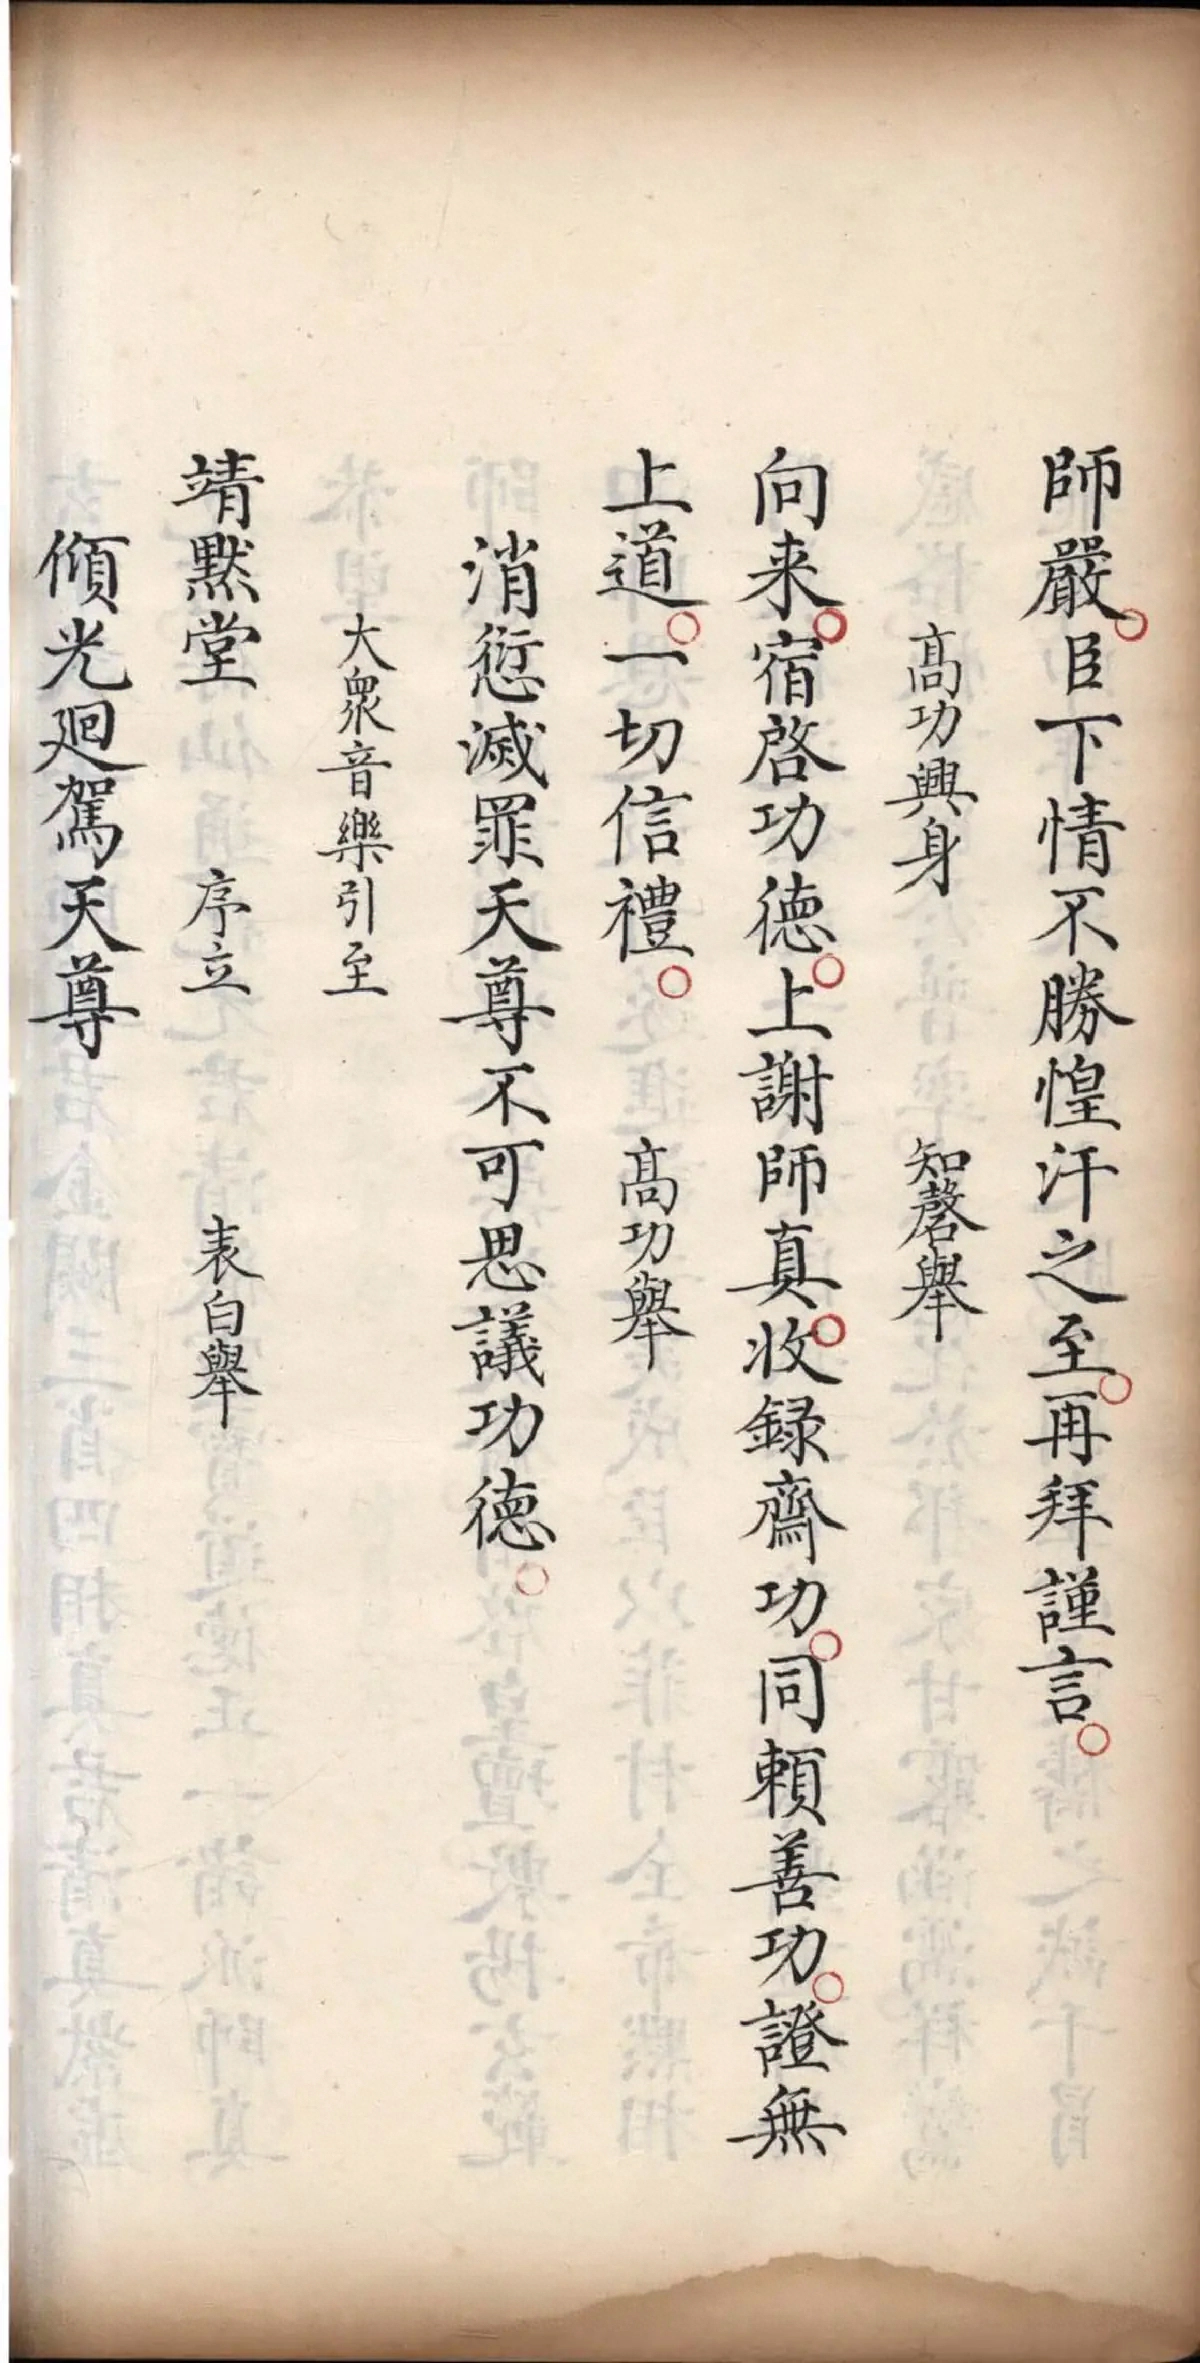 師嚴。臣下情不勝惶汗之至。再拜謹言。
高功興身　知磬舉
向来。宿啓功德。上謝師真。收録齋功。同頼善功。證無
上道。一切信禮。　高功舉
消愆滅罪天尊不可思議功德。
大衆音樂引至
靖默堂　序立　表白舉
傾光廻駕天尊